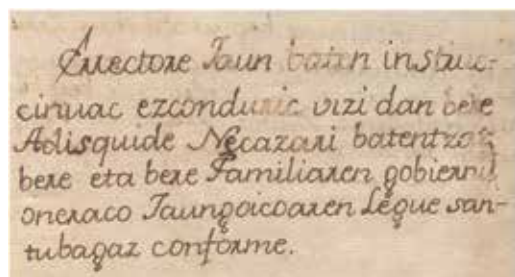 Errectore Jaun baten instruc-
cinuac ezconduric vizi dan bere
Adisquide Necazari batentzat,
bere eta bere Familiaren gobiernu
oneraco Jaungoicoaren Legue san-
tubagaz conforme.